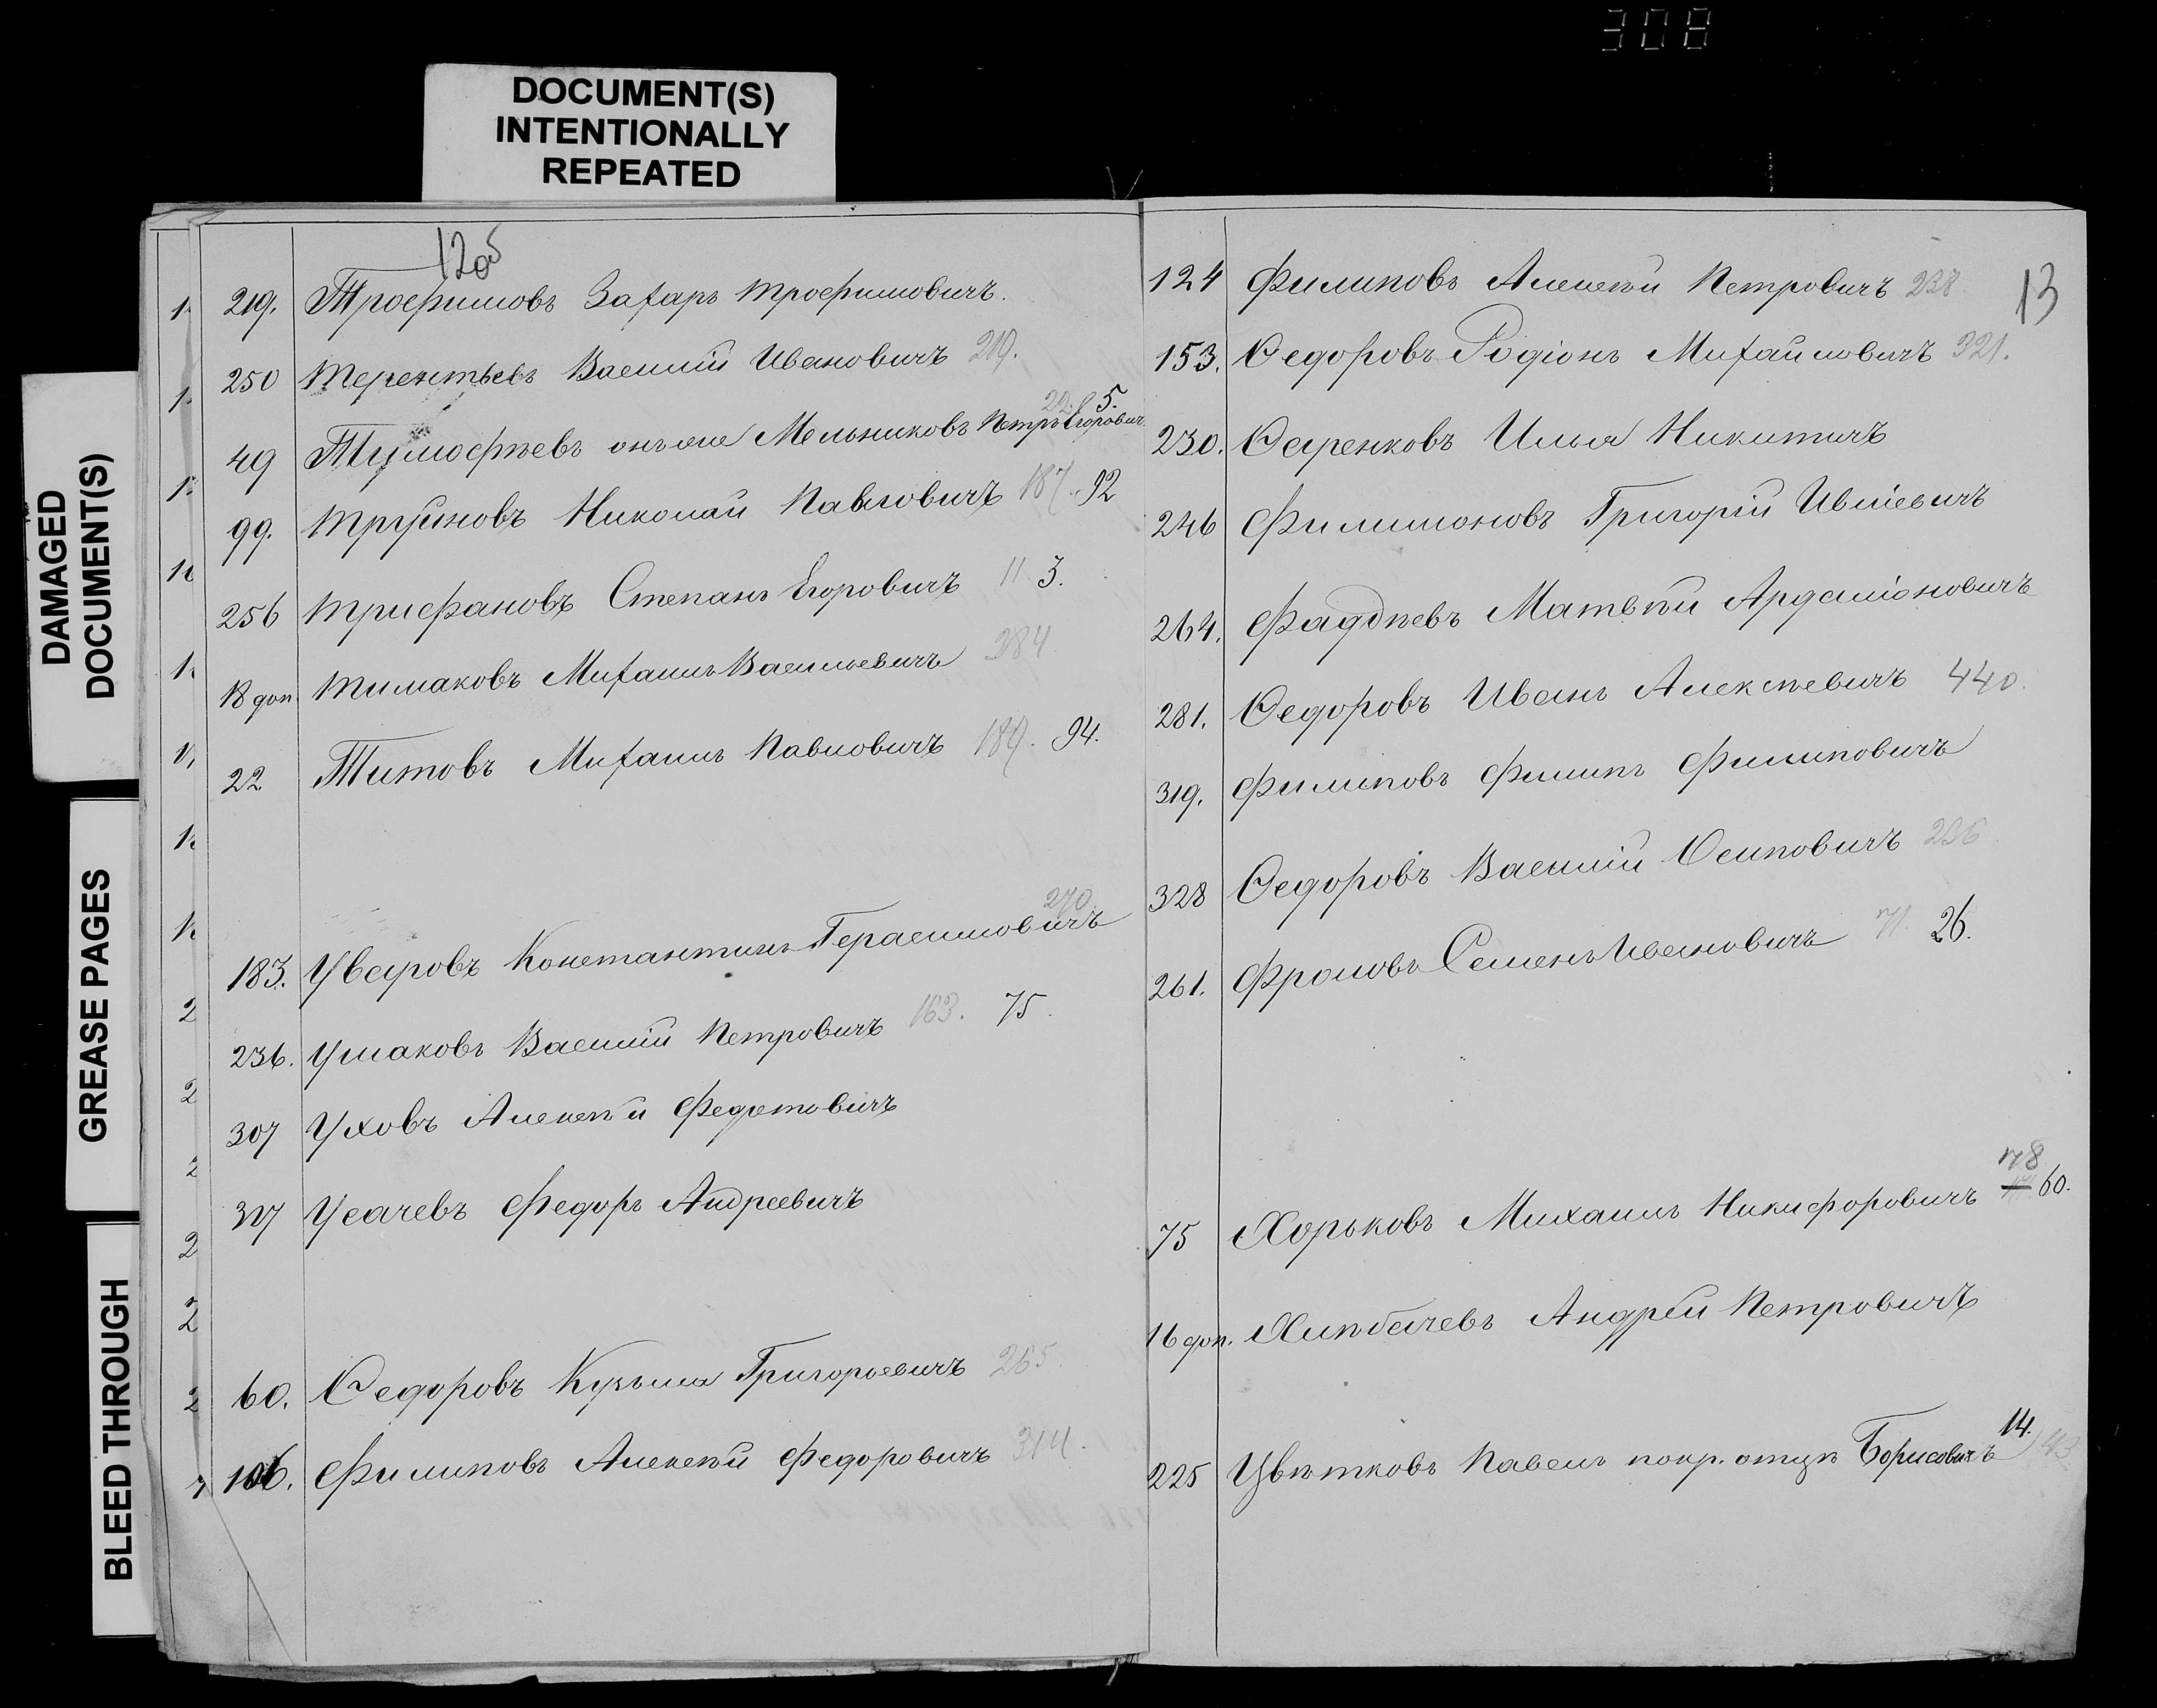 308
DOCUMENT(S)
INTENTIONALLY
REPEATED
DAMAGED
DOCUMENT(S)
GREASE PAGES
BLEED THROUGH
12об
219. Трофимовъ Захаръ Трофимовичъ.
250 Терентьевъ Василій Ивановичъ 219.
49 Тимофѣевъ онъ же Мельниковъ Петръ Егоровичъ 22. 5.
99. Труновъ Николай Павловичъ 187. 92
256 Трифановъ Степанъ Егоровичъ 11 3.
18 доп. Тимаковъ Михаилъ Васильевичъ 384
22 Титовъ Михаилъ Павловичъ 189. 94.
183. Уваровъ Константинъ Герасимовичъ 270.
236. Ушаковъ Василій Петровичъ 163. 75.
307 Уховъ Алексѣй Федотовичъ
317 Усачевъ Федоръ Андреевичъ
60. Ѳедоровъ Кузьма Григорьевичъ 265.
106. Филиповъ Алексѣй Федоровичъ 314.
13
124 Филиповъ Алексѣй Петровичъ 238
153. Ѳедоровъ Родіонъ Михайловичъ 321.
230. Ѳаренковъ Илья Никитичъ
246 Филимоновъ Григорій
264. Фаддѣевъ Матвѣй Ардаліоновичъ
281. Ѳедоровъ Иванъ Алексѣевичъ 440.
319. Филиповъ Филипъ Филиповичъ
328 Ѳедоровъ Василій Осиповичъ 236
261. Фроловъ Семенъ Ивановичъ 71. 26.
75 Хорьковъ Михаилъ Никифоровичъ 178 60.
16 доп. Хлѣбачевъ Андрей Петровичъ
225 Цвѣтковъ Павелъ покр. отцѣ Борисовичъ 14. 43